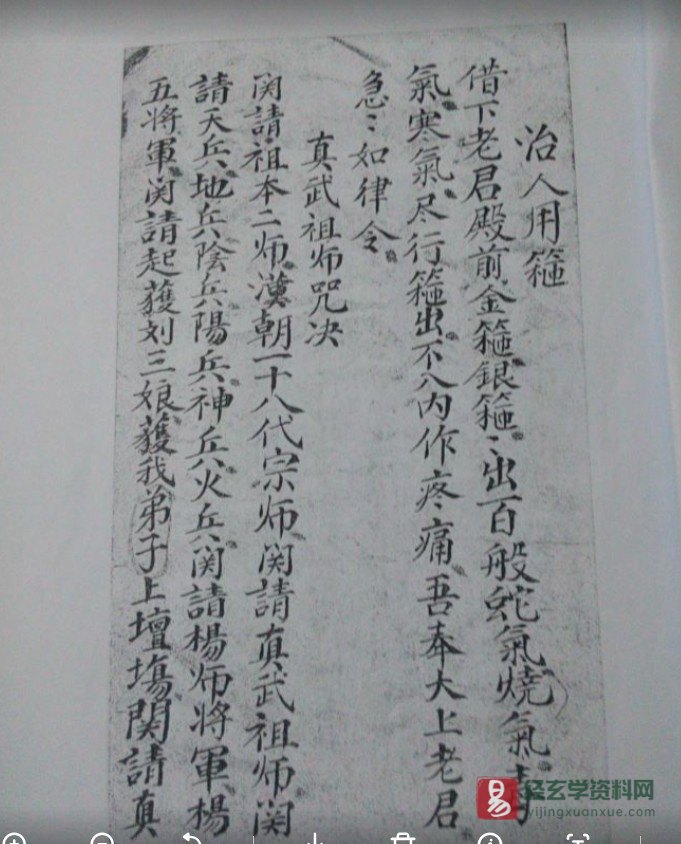 治人用箍
借下老君殿前金箍銀箍〻出百般蛇氣燒氣毒
氣寒氣尽行箍出不入内作疼痛吾奉大上老君
急〻如律令
真武祖师咒决
関請祖本二师漢朝一十八代宗师関請真武祖师関
請天兵地兵陰兵陽兵神兵火兵関請楊师将軍楊
五将軍関請起䕶刘三娘䕶我弟子上壇塲関請真
易
经玄学资料网
yijingxuanxue.com